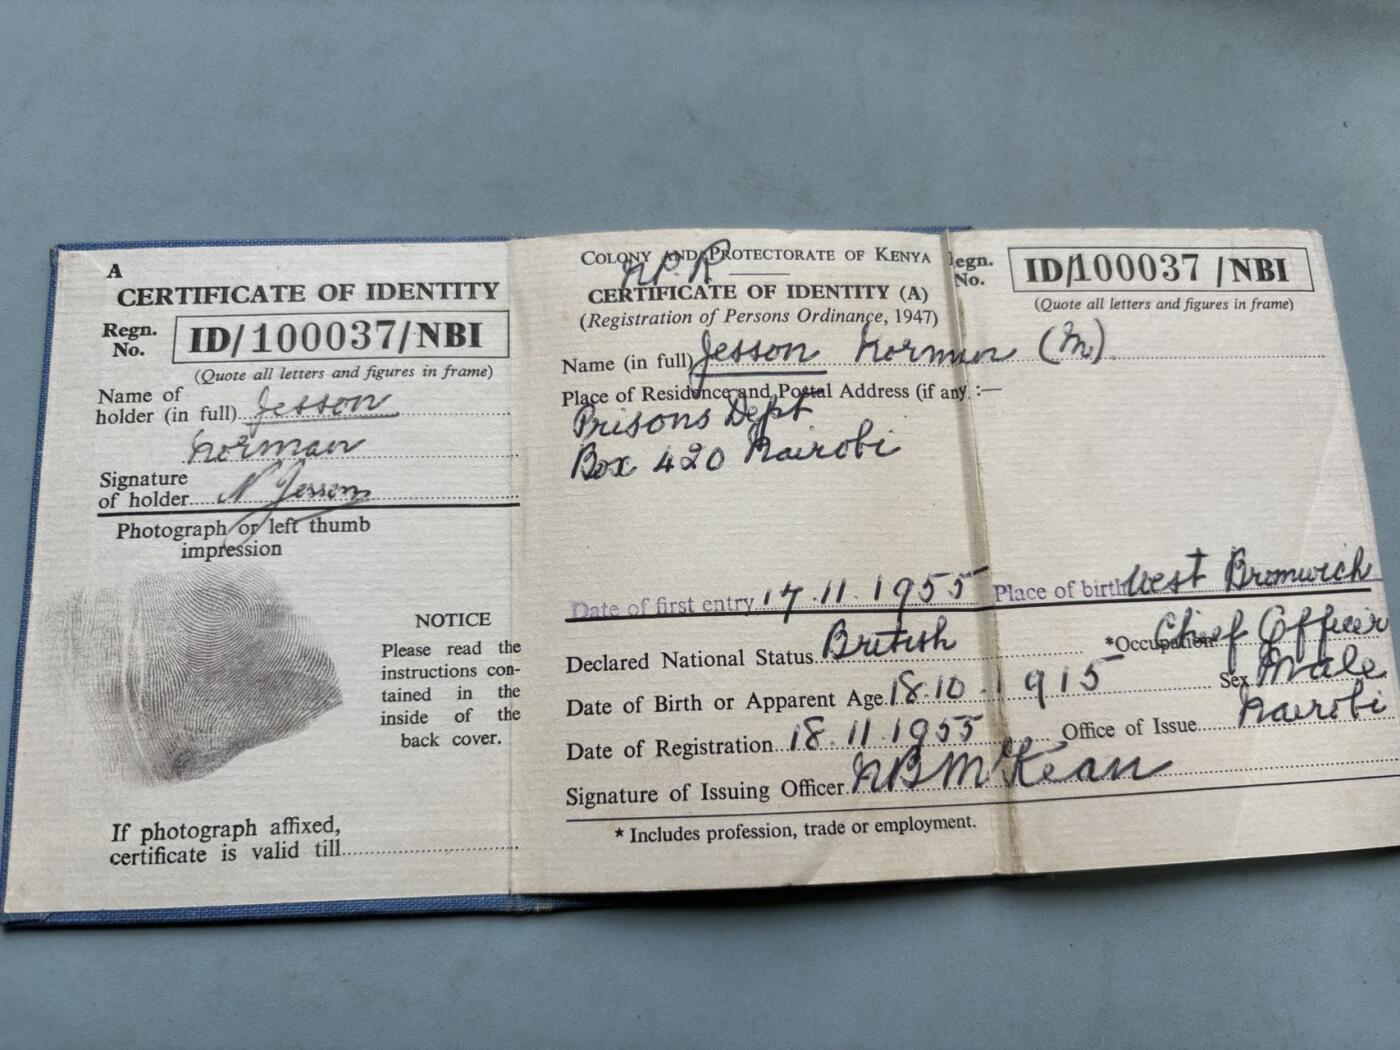 A
CERTIFICATE OF IDENTITY
Regn. No. ID/100037/NBI
(Quote all letters and figures in frame)
Name of
holder (in full) Jesson
Norman
Signature
of holder N Jesson
Photograph or left thumb
impression
NOTICE
Please read the
instructions con-
tained in the
inside of the
back cover.
If photograph affixed,
certificate is valid till
COLONY AND PROTECTORATE OF KENYA
N.P.R
CERTIFICATE OF IDENTITY (A)
(Registration of Persons Ordinance, 1947)
egn. No. ID/100037/NBI
(Quote all letters and figures in frame)
Name (in full) Jesson Norman (M)
Place of Residence and Postal Address (if any :—
Prisons Dept
Box 420 Nairobi
Date of first entry 17.11.1955 Place of birth West Bromwich
Declared National Status British *Occupation Chief Officer
Date of Birth or Apparent Age 18.10.1915 Sex Male
Date of Registration 18.11.1955 Office of Issue Nairobi
Signature of Issuing Officer NB McKean
* Includes profession, trade or employment.